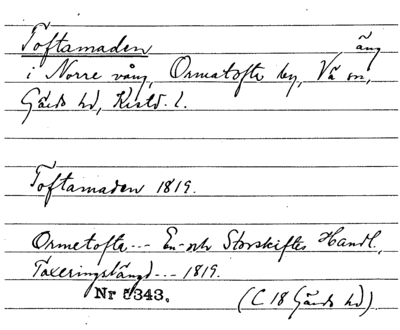 Toftamaden äng
i Norre vång, Ormatofta by, Vä sn,
Gärds hd, Krist. l.
Toftamaden 1819.
Ormetofta--- En- och Storskiftes Handl.,
Taxeringslängd--- 1819.
Nr 5343.
(C 18 Gärds hd)